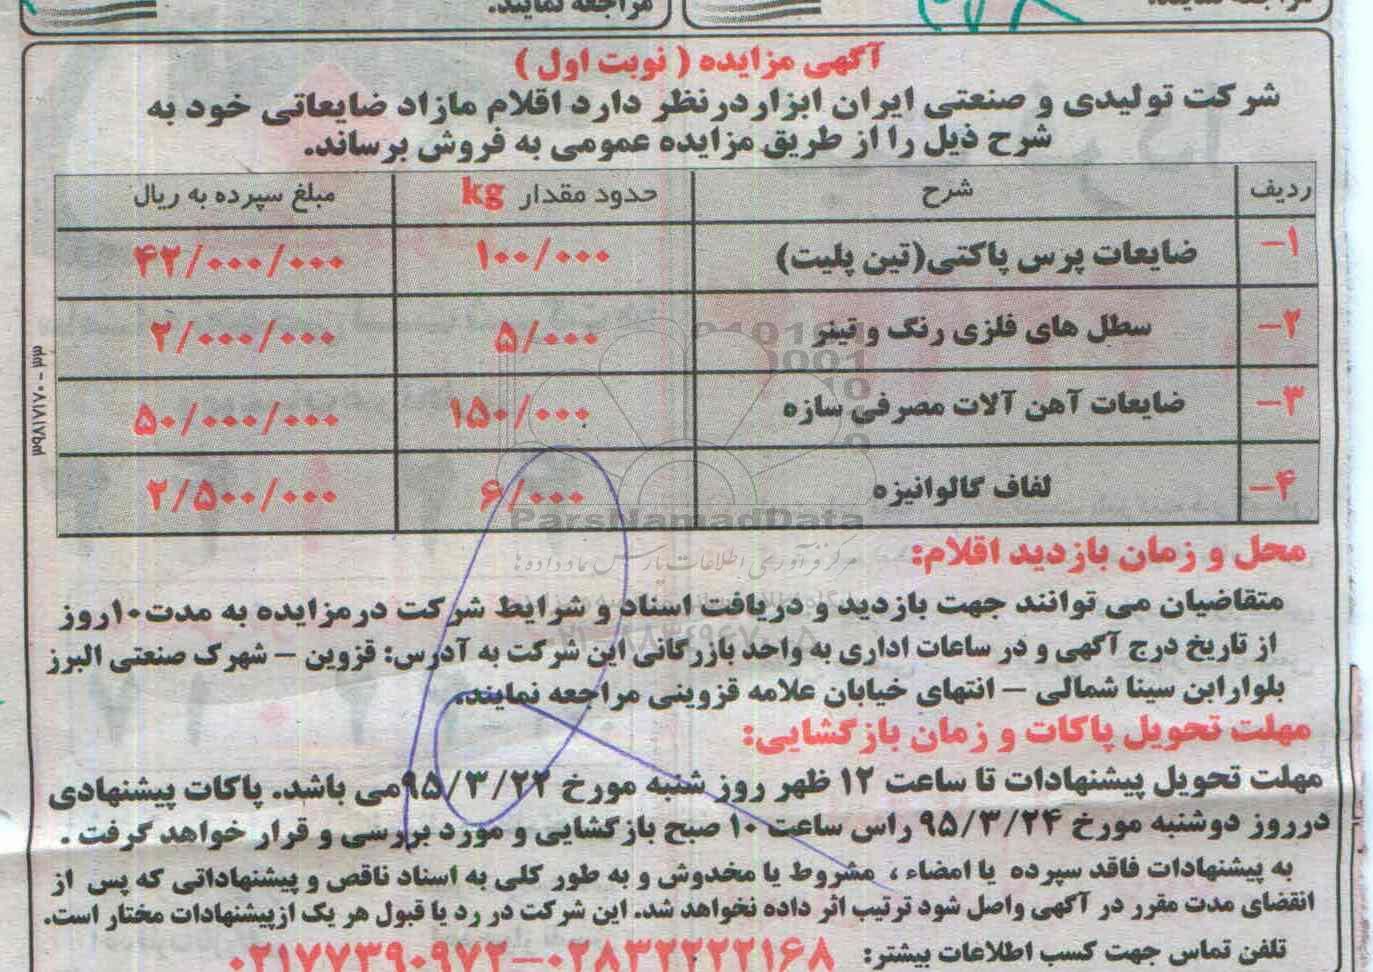 مراجعه نمایند.
آگهی مزایده ( نوبت اول )
شرکت تولیدی و صنعتی ایران ابزاردرنظر دارد اقلام مازاد ضایعاتی خود به
شرح ذیل را از طریق مزایده عمومی به فروش برساند.
ردیف شرح حدود مقدار kg مبلغ سپرده به ریال
۱- ضایعات پرس پاکتی(تین پلیت) ۱۰۰/۰۰۰ ۴۲/۰۰۰/۰۰۰
۲- سطل های فلزی رنگ و تینر ۵/۰۰۰ ۲/۰۰۰/۰۰۰
۳- ضایعات آهن آلات مصرفی سازه ۱۵۰/۰۰۰ ۵۰/۰۰۰/۰۰۰
۴- لفاف گالوانیزه ۶/۰۰۰ ۲/۵۰۰/۰۰۰
ParsNamadData
مرکز فرآوری اطلاعات پارس نماد داده ها
محل و زمان بازدید اقلام:
متقاضیان می توانند جهت بازدید و دریافت اسناد و شرایط شرکت درمزایده به مدت۱۰روز
از تاریخ درج آگهی و در ساعات اداری به واحد بازرگانی این شرکت به آدرس: قزوین – شهرک صنعتی البرز
بلوارابن سینا شمالی – انتهای خیابان علامه قزوینی مراجعه نمایند.
مهلت تحویل پاکات و زمان بازگشایی:
مهلت تحویل پیشنهادات تا ساعت ۱۲ ظهر روز شنبه مورخ ۹۵/۳/۲۲می باشد. پاکات پیشنهادی
درروز دوشنبه مورخ ۹۵/۳/۲۴ راس ساعت ۱۰ صبح بازگشایی و مورد بررسی و قرار خواهد گرفت .
به پیشنهادات فاقد سپرده یا امضاء ، مشروط یا مخدوش و به طور کلی به اسناد ناقص و پیشنهاداتی که پس از
انقضای مدت مقرر در آگهی واصل شود ترتیب اثر داده نخواهد شد. این شرکت در رد یا قبول هر یک ازپیشنهادات مختار است.
تلفن تماس جهت کسب اطلاعات بیشتر: ۰۲۸۳۲۲۲۲۱۶۸–۰۲۱۷۷۳۹۰۹۷۲